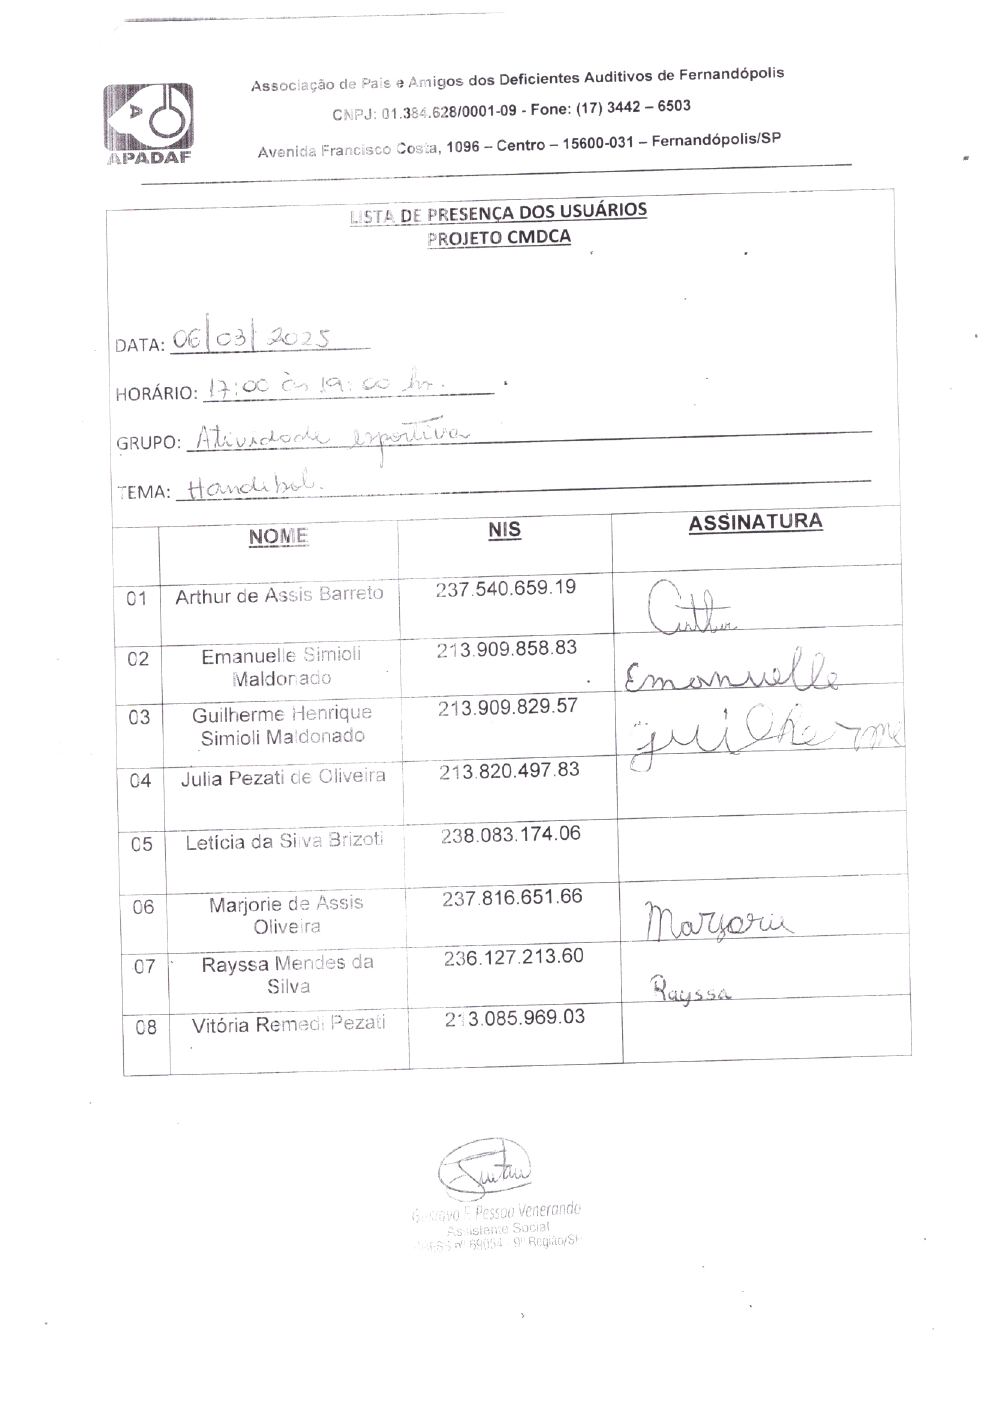 Associação de Pais e Amigos dos Deficientes Auditivos de Fernandópolis
CNPJ: 01.384.628/0001-09 - Fone: (17) 3442 – 6503
Avenida Francisco Costa, 1096 – Centro – 15600-031 – Fernandópolis/SP
APADAF
LISTA DE PRESENÇA DOS USUÁRIOS
PROJETO CMDCA
DATA: 06/03/2025
HORÁRIO: 17:00 às 19:00 hr.
GRUPO: Atividade esportiva
TEMA: Handibol.
NOME NIS ASSINATURA
01 Arthur de Assis Barreto 237.540.659.19 Arthur
02 Emanuelle Simioli Maldonado 213.909.858.83 Emanuelle
03 Guilherme Henrique Simioli Maldonado 213.909.829.57 guilherme
04 Julia Pezati de Oliveira 213.820.497.83
05 Letícia da Silva Brizoti 238.083.174.06
06 Marjorie de Assis Oliveira 237.816.651.66 Marjorie
07 Rayssa Mendes da Silva 236.127.213.60 Rayssa
08 Vitória Remedi Pezati 213.085.969.03
Gustavo F. Pessoa Venerando
Assistente Social
nº 69054 9ª Região/SP